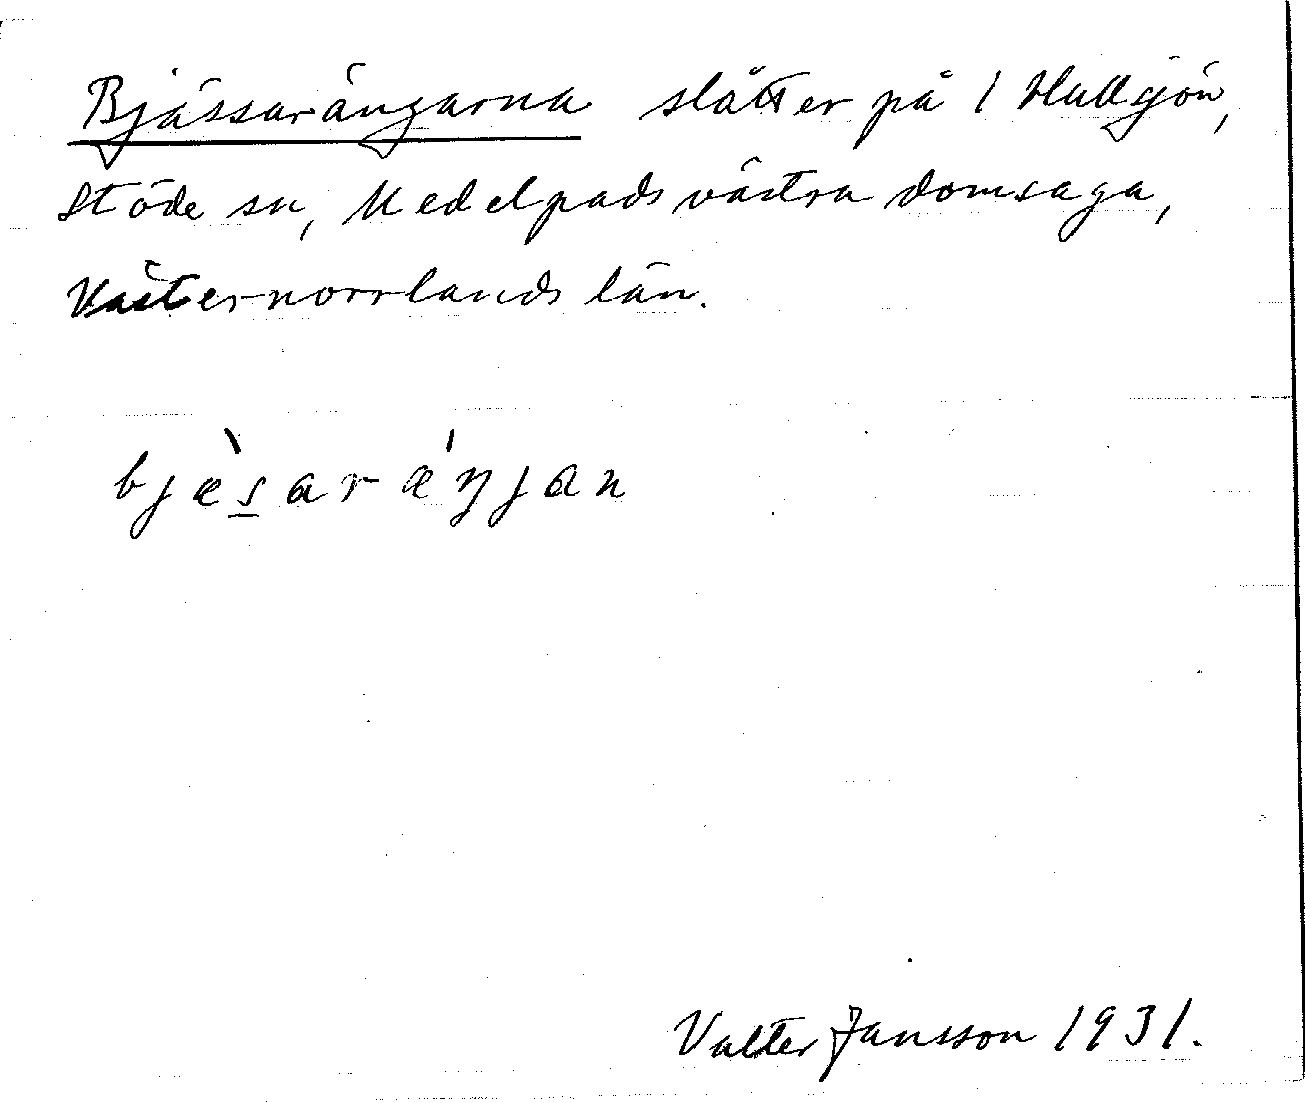 Bjässarängarna slåtter på 1 Hullsjön,
Stöde sn, Medelpads västra domsaga,
Västernorrlands län.
bjæ̀s̲arǽŋjan
Valter Jansson 1931.